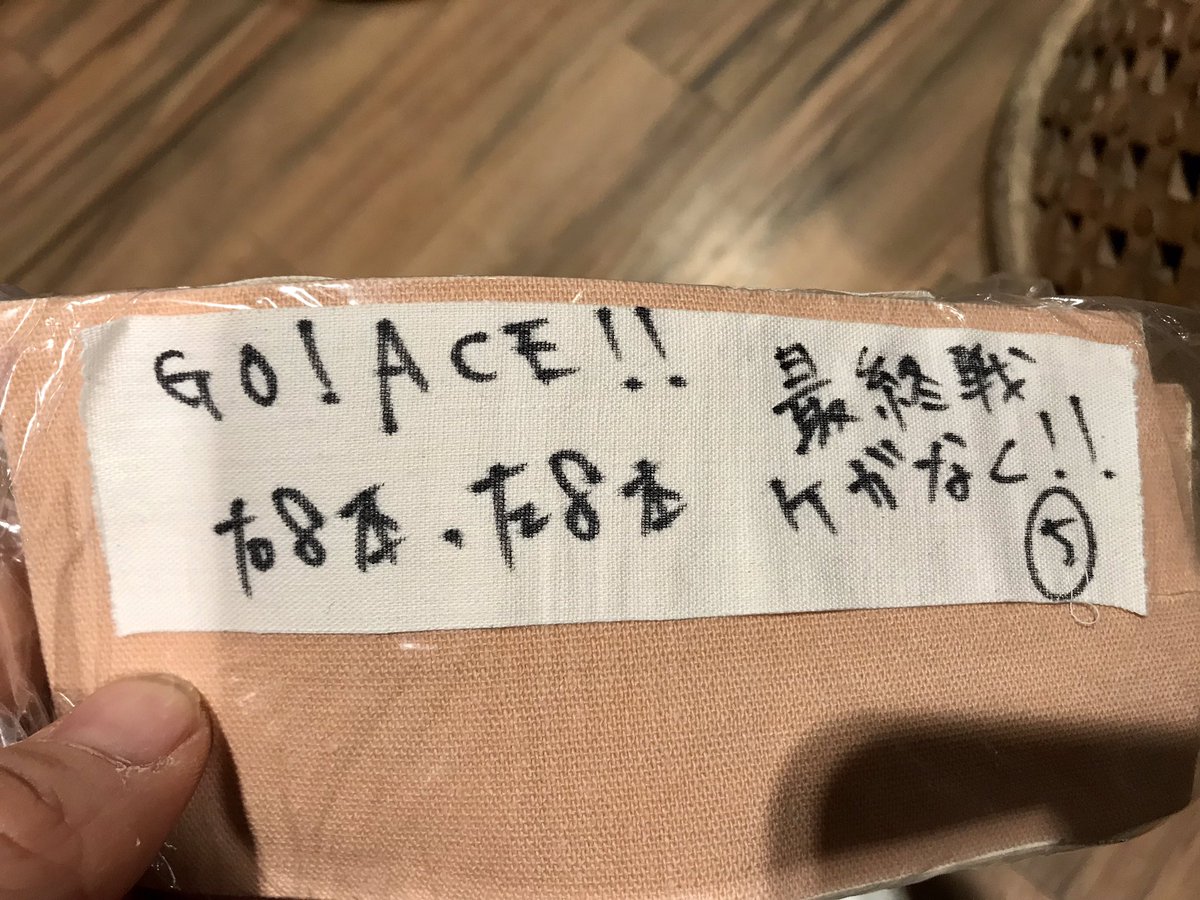 GO! ACE!!
右8本・左8本
最終戦
ケガなく!!
⑤